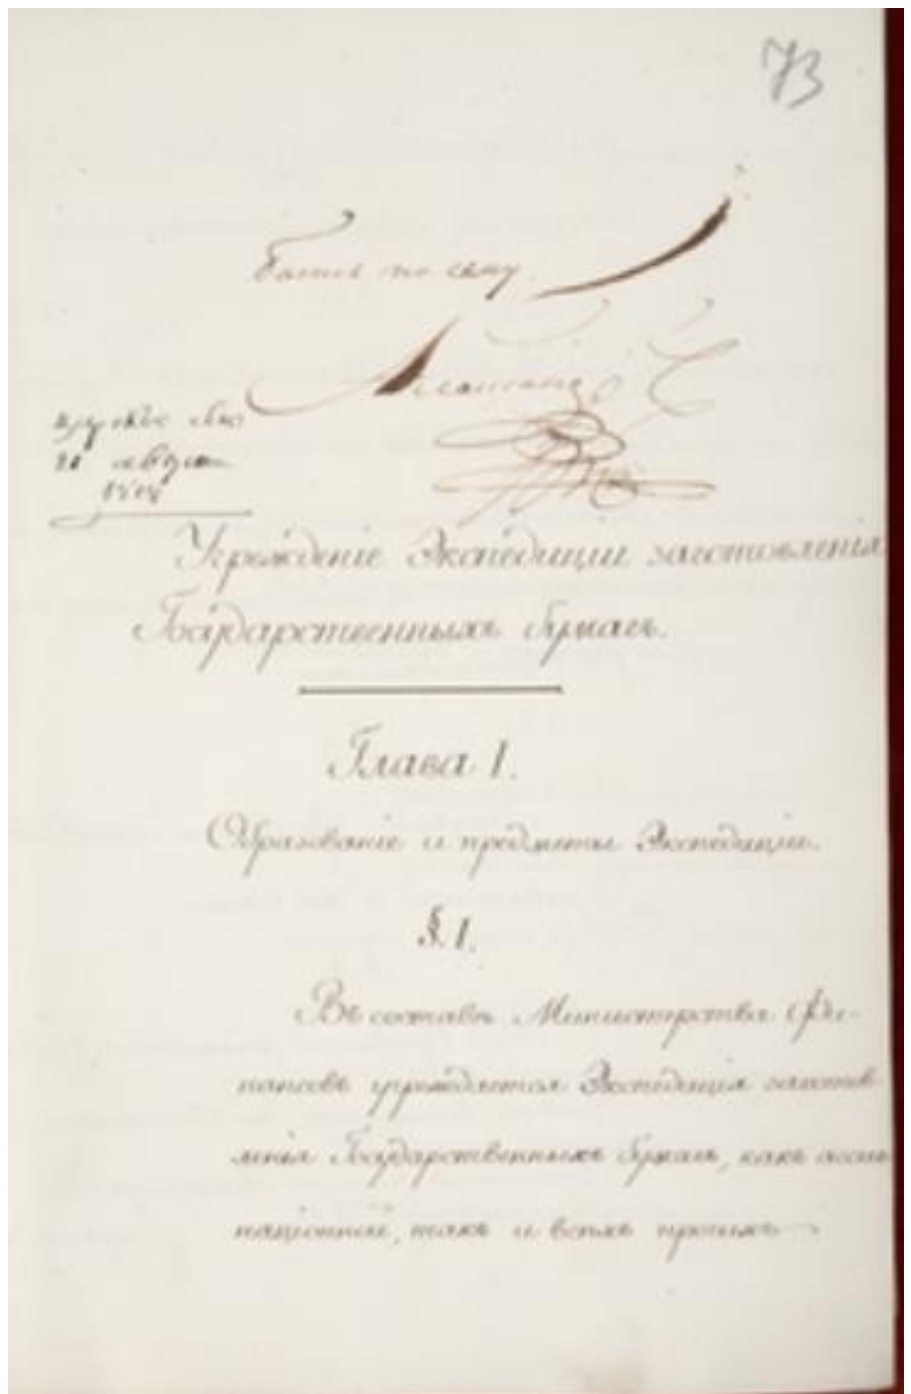 73
Быть по сему.
Александръ
21 августа
1818
Учрежденіе Экспедиціи заготовленія
Государственныхъ бумагъ.
Глава I.
Образованіе и предметы Экспедиціи.
§. 1.
Въ составѣ Министерства Фи-
нансовъ учреждается Экспедиція заготов
ленія Государственныхъ бумагъ, какъ ассиг
націонной, такъ и всѣхъ прочихъ